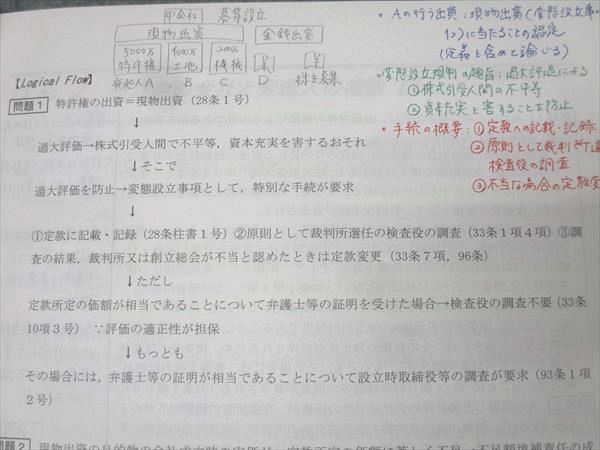 甲会社 募集設立
現物出資 金銭出資
5000万 特許権 土地 200万 機械 ¥ ¥
発起人A B C D 株主募集
・Aの行う出資:現物出資(変態設立事
に当たることの認定
(定義と含めて論じる)
・変態設立規制の趣旨:過大評価による
①株式引受人間の不平等
②資本充実を害することを防止
・手続の概要:①定款への記載・記録
②原則として裁判所
検査役の調査
③不当な場合の定款変
【Logical Flow】
問題1 特許権の出資=現物出資(28条1号)
↓
過大評価→株式引受人間で不平等,資本充実を害するおそれ
↓そこで
過大評価を防止→変態設立事項として,特別な手続が要求
↓
①定款に記載・記録(28条柱書1号)②原則として裁判所選任の検査役の調査(33条1項4項)③調
査の結果,裁判所又は創立総会が不当と認めたときは定款変更(33条7項,96条)
↓ただし
定款所定の価額が相当であることについて弁護士等の証明を受けた場合→検査役の調査不要(33条
10項3号) ∵評価の適正性が担保
↓もっとも
その場合には,弁護士等の証明が相当であることについて設立時取締役等の調査が要求(93条1項
2号)
問題2 現物出資の目的物の会社成立時の価額が,定款所定の価額に著しく不足→不足額填補責任の成